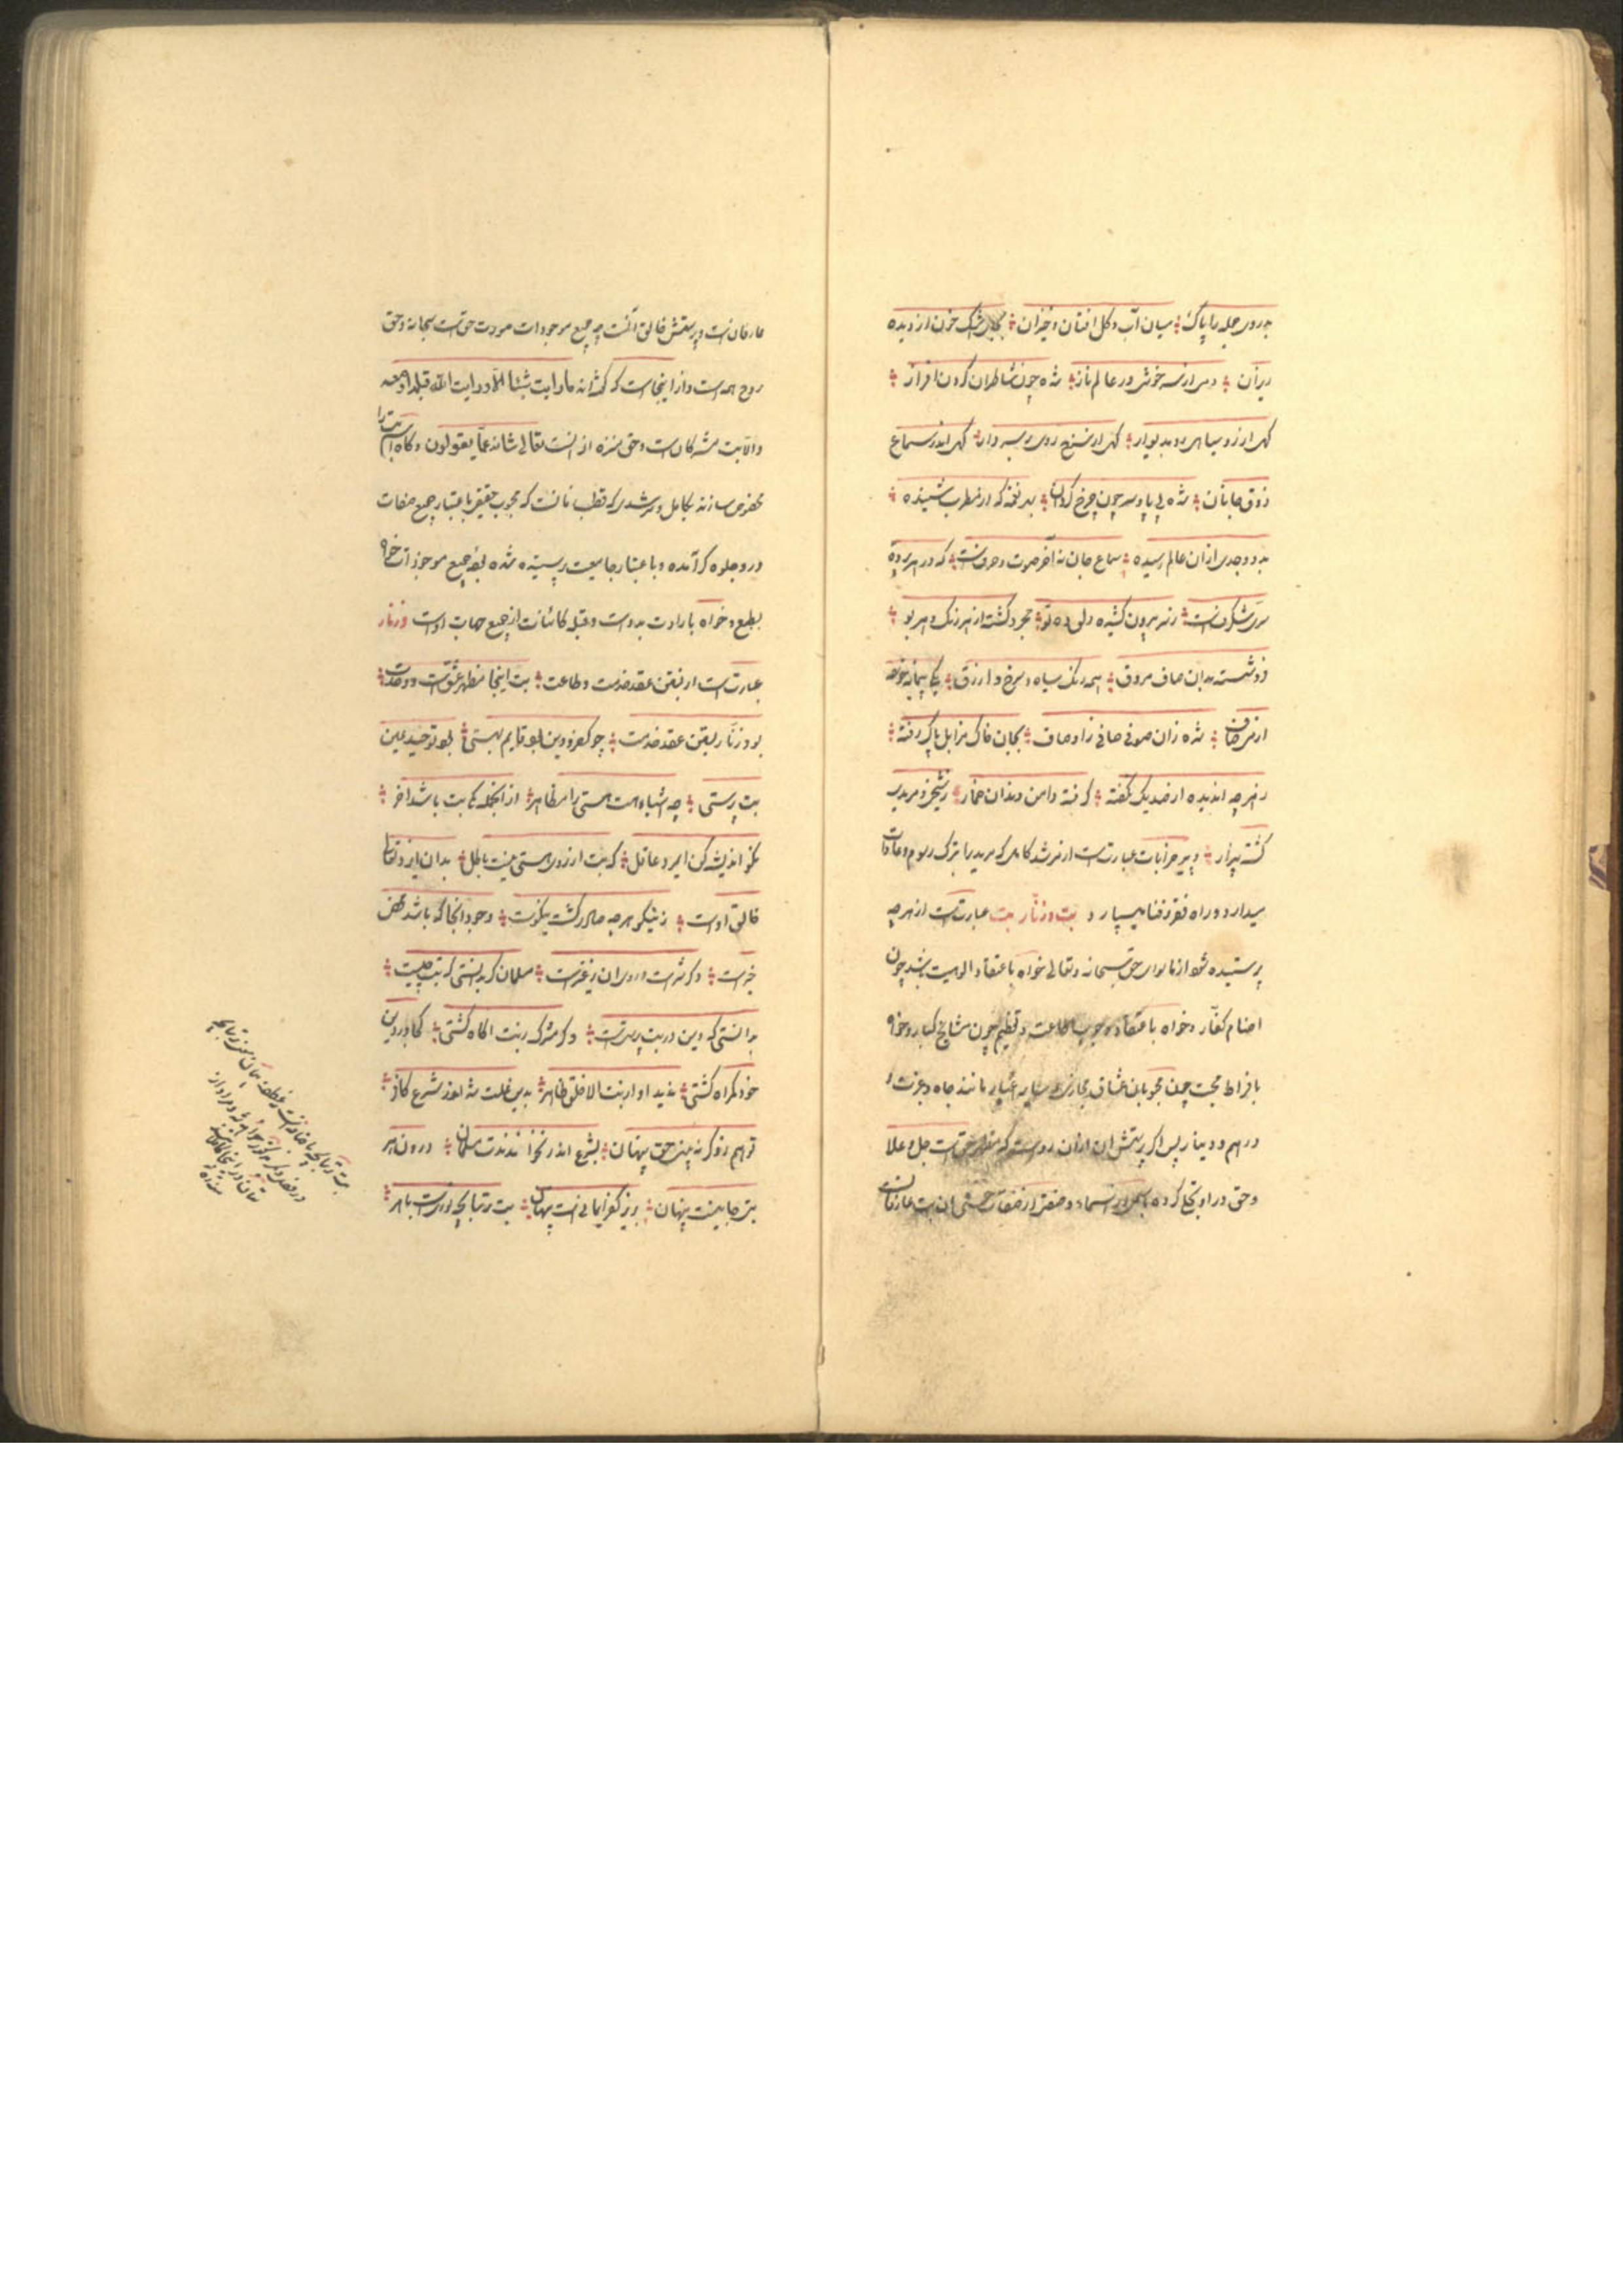 به روی جمله را پاک میان آب و گل افتان و خیزان بجای اشک خون از دیده
ریزان دمی از سر خوشی در عالم ناز شده چون شاطران گردن افراز
گهی از رو سیاهی رو به دیوار گهی از سرخ رویی بر سر دار گهی اندر سماع
ذوق جانان شده بی پا و سر چون چرخ گردان بهر نغمه که از مطرب شنیده
بدو وجدی از آن عالم رسیده سماع جان نه آخر صوت و حرفست که در هر پرده
سری شگرفست ز سر بیرون کشیده دلق ده تو مجرد گشته از هر رنگ و هر بو
فرو شسته بدان صاف مروق همه رنگ سیاه و سرخ و ازرق یکی پیمانه خورده
از می صاف شده زان صوفی صافی ز اوصاف بجان خاک مزابل پاک رفته
ز هر چه اندیده از صد یک گفته گرفته دامن رندان خمار ز شیخی و مریدی
گشته بیزار و پیر خرابات عبارتست از مرشد کامل که مرید را بترک رسوم و عادات
میدارد و راه فقر و فنا میسپارد بت و زنار بت عبارتست از هر چه
پرستیده شود از ما سوای حق سبحانه و تعالی خواه باعتقاد الوهیت باشد چون
اصنام کفار و خواه باعتقاد وجوب اطاعت و تعظیم چون مشایخ کبار و خواه
بافراط محبت چون محبوبان عشاق مجازی و سایر اغیار مانند جاه و عزت و
درهم و دینار پس اگر پرستش آن از آن روست که مظهر حقست جل و علا
و حق در او تجلی کرده باسمی از اسماء و صفتی از صفات حسنی آن بت عارفانست
عارفانست و پرستش خالق آنست چه جمیع موجودات صورت حقست سبحانه و حق
روح همه است و از اینجاست که گفته‌اند ما رایت شیئا الا و رایت الله قبله او معه
و الا بت مشرکان است و حق منزه از آنست تعالی شانه عما یقولون و گاه بت را
مخصوص سازند بکامل و مرشدی که قطب زمانست که محبوب حقیقی باعتبار جمیع صفات
در و جلوه گر آمده و باعتبار جامعیت پرستیده شده جمیع موجودات خواه
بطبع و خواه بارادت بدوست و قبله کائنات از جمیع جهات اوست و زنار
عبارتست از بستن عقد خدمت و طاعت بت اینجا مظهر عشقست و وحدت
بود زنار بستن عقد خدمت چو کفر و دین بود قایم بهستی بود توحید عین
بت پرستی چو اشیا هست هستی را مظاهر از آنجمله یکی بت باشد آخر
نکو اندیشه کن ای مرد عاقل که بت از روی هستی نیست باطل بدان کایزد تعالی
خالق اوست ز نیکو هر چه صادر گشت نیکوست وجود آنجا که باشد محض
خیرست وگر شرست در وی آن ز غیرست مسلمان گر بدانستی که بت چیست
بدانستی که دین در بت پرستیست وگر مشرک ز بت آگاه گشتی کجا در دین
خود گمراه گشتی ندید او از بت الا خلق ظاهر بدین علت شد اندر شرع کافر
تو هم زو گر نه بینی حق پنهان بشرع اندر نخوانندت مسلمان درون هر
بتی جانیست پنهان بزیر کفر ایمانیست پنهان بت ترسا بچه نوریست باهر